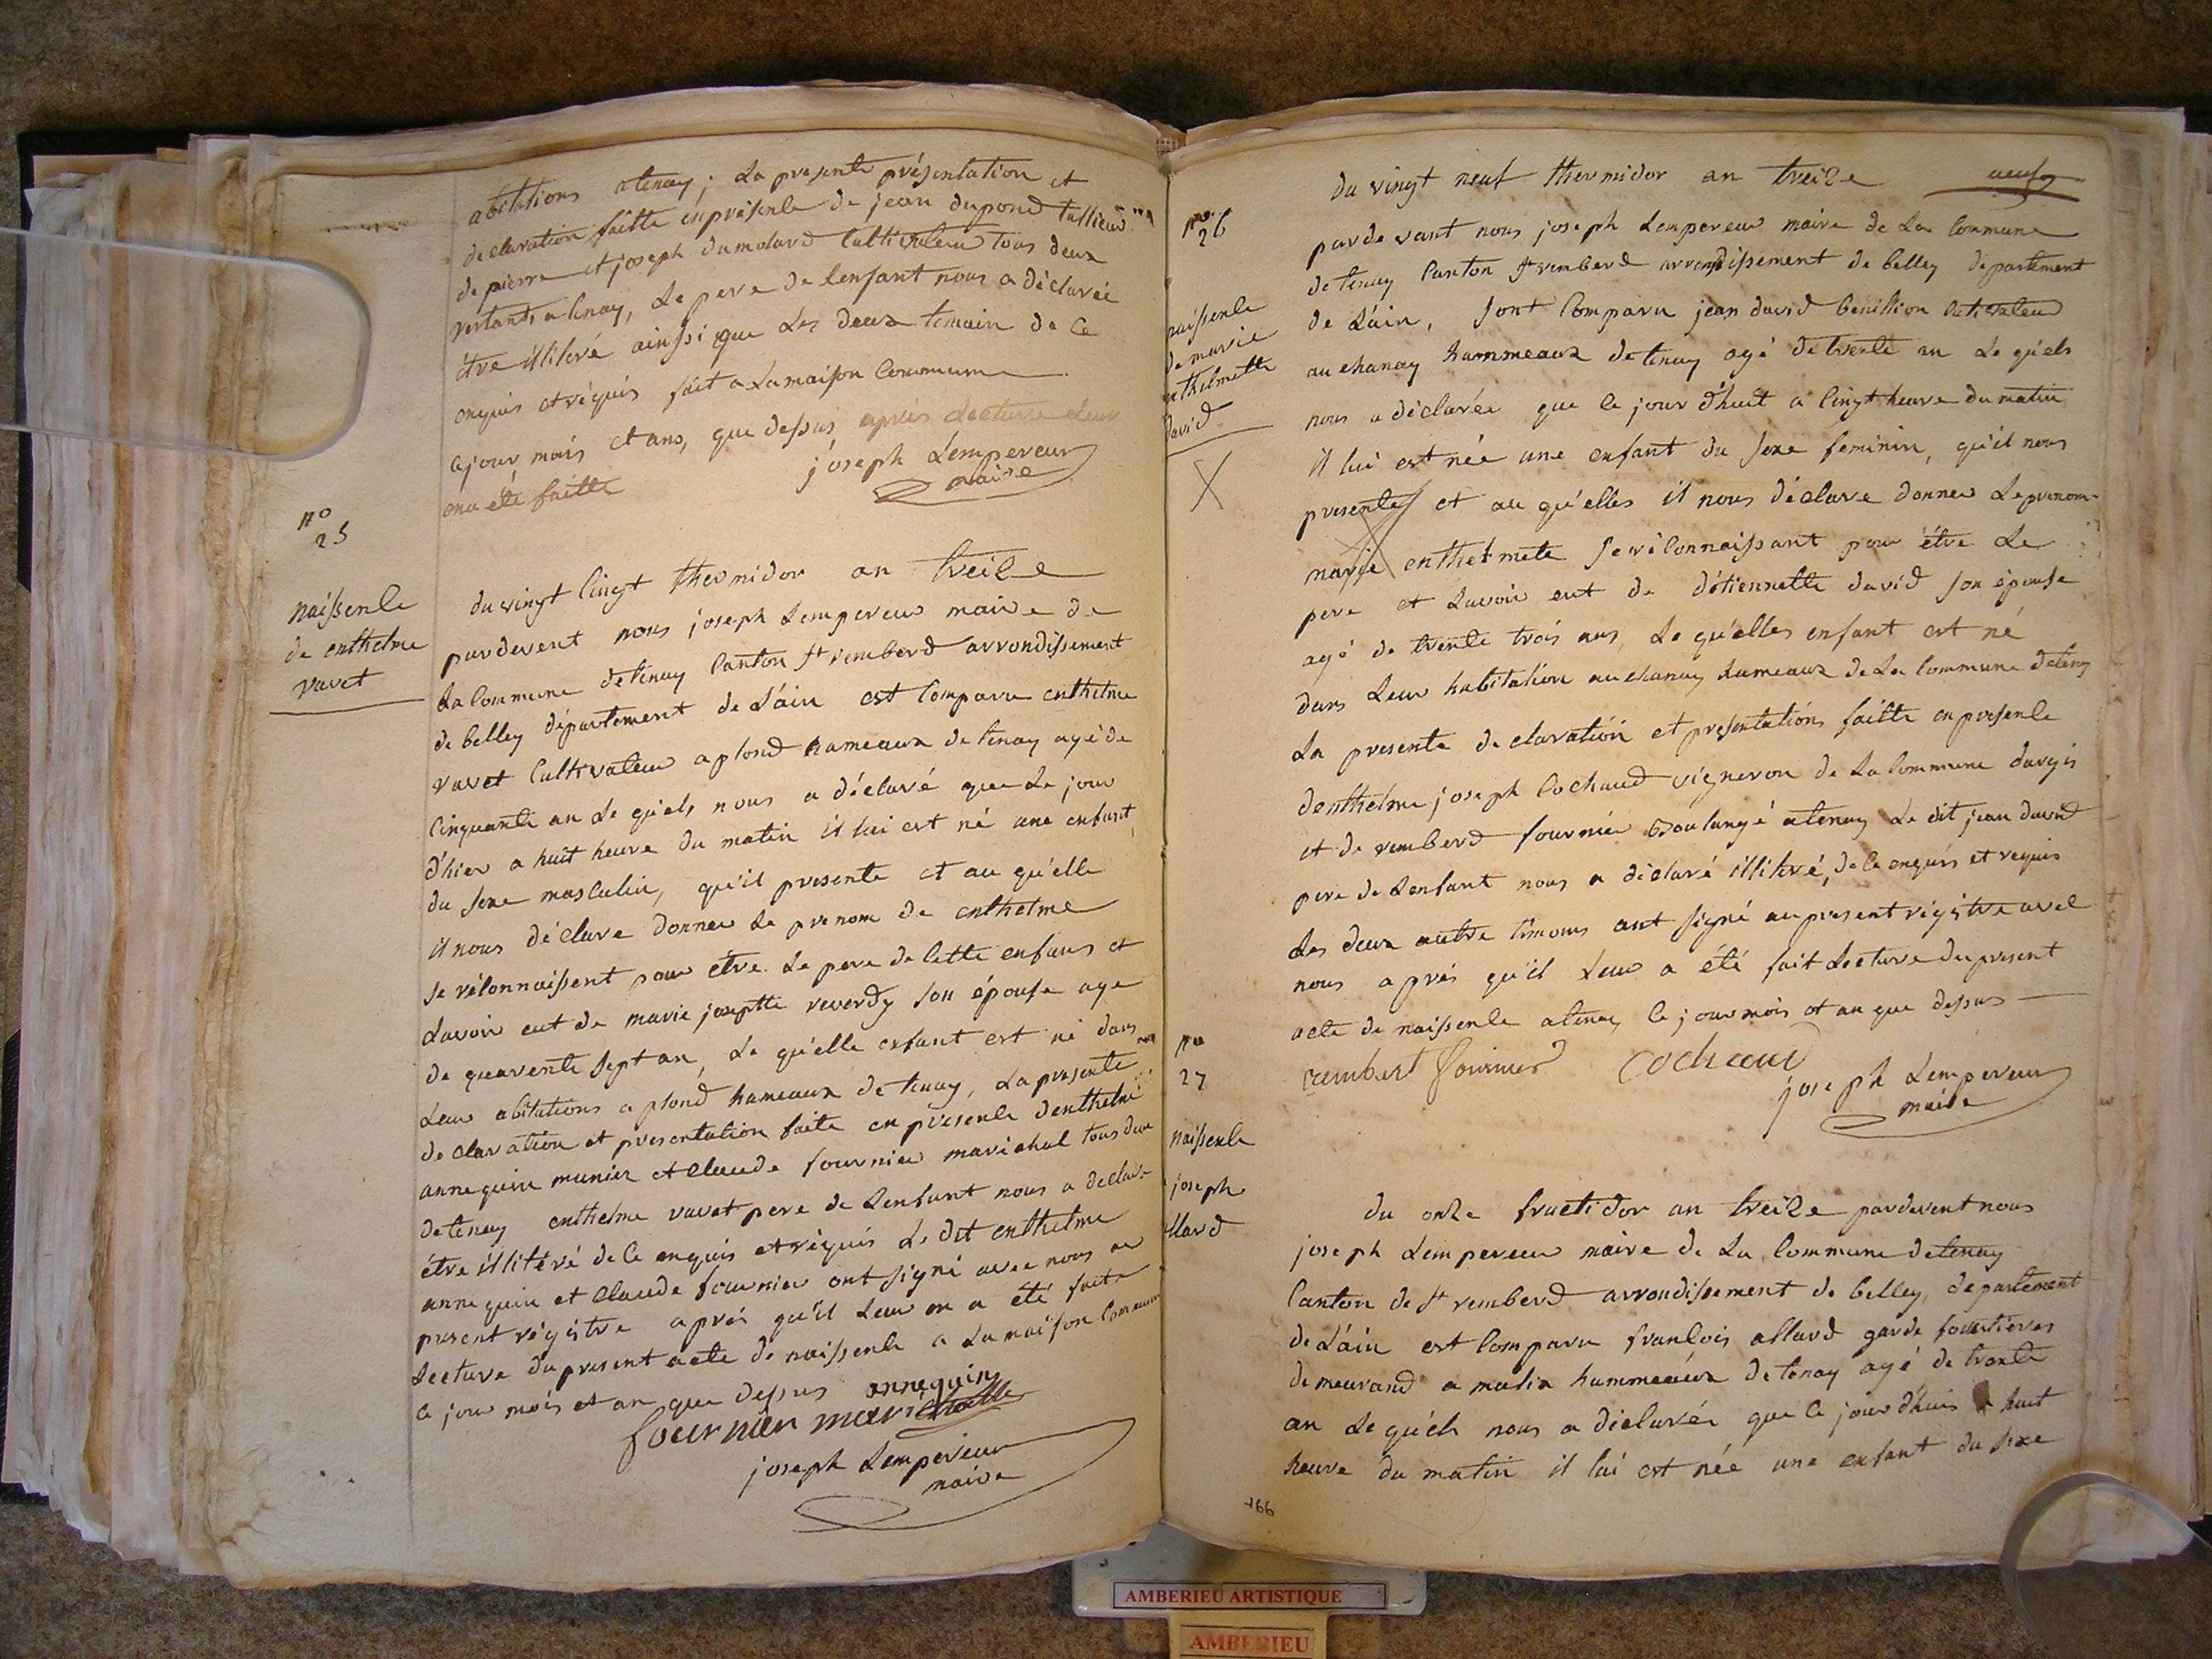 abitations atenay; La presente présentation et
declaration faitte enprésente de jean dupond tallieur
de pierre et joseph dumolard Cultivateur tous deux
restants atenay, Le pere de lenfant nous a déclarée
être illiteré ainssi que Les deux temoin de Ce
enquis et réquis fait a Lamaison Commune
cejour mois et ans, que dessus après Lecture Leur
ena été faitte
joseph Lempereur
maire
n°
25
naissence
de enthelme
ravet
du vingt Cinqt thermidor an treize
pardevent nous joseph Lempereur maire de
La Commune detenay Canton St remberd arrondissement
de belley département de L'ain est Comparu enthelme
ravet Cultivateur a plond hameaux de tenay agé de
Cinquante an Le qu'els nous a déclaré que Le jour
d'hier a huit heure du matin il lui est né une enfant
du sexe masculin, qu'il presente et au qu'elle
il nous déclare donner Le prenom de enthelme
se réconnaissent pour être Le pere de Cette enfans et
Lavoir eut de marie josephtte reverdy son épouse age
de quarente sept an, Le qu'elle enfant est né dans
Leur abitations a plond hameaux de tenay, La presente
declaration et presentation faite en présence denthelme
annequin munier et Claude fournier marichal tous deux
detenay enthelme ravet pere de Lenfant nous a declaré
étre illitéré de Ce enquis et réquis Le dit enthelme
annequin et Claude fournier ont signé avec nous au
present régistre aprés qu'il Leur en a été faite
Lecture du present acte de naissence a La maison Commune
Ce jour mois et an que dessus annequin
fournier marichalle
joseph Lempereur
maire
neuf
du vingt neuf thermidor an treize
n°
26
naissence
de marie
enthelmette
david
X
parde vant nous joseph Lempereur maire de La Commune
de tenay Canton St remberd arrondissement de belley departement
de L'ain, sont Comparu jean david Cultivateur
au chanay hammeaux de tenay agé detrente un Le qu'els
nous a déclarée que Ce jour d'huit a Cinqt heure du matin
il lui est née une enfant du sexe feminin, qu'il nous
presente et au qu'elles il nous déclare donner Le prenom
marie enthelmete se réconnaissant pour être Le
pere et Lavoir eut de détiennette david son épouse
agé de trente trois ans, Le qu'elles enfant est né
dans Leur habitation au chanay hameaux de La Commune detenay
La presente declaration et presentations faitte en presence
denthelme joseph Cochaud vigneron de La Commune dargis
et de remberd fournier Boulangé atenay Le dit jean david
pere de Lenfant nous a déclaré illitéré, de Ce enquis et requis
Les deux autre temoins ont signé au present régistre avec
nous aprés qu'il Leur a été fait Lecture du present
acte de naissence atenay Ce jour mois et an que dessus
rembert fournier Cochaud
joseph Lempereur
maire
n°
27
naissence
joseph
allard
du onze fructidor an treize pardevent nous
joseph Lempereur maire de La Commune detenay
Canton de St remberd arrondissement de belley, departement
de L'ain est Comparu françois allard garde fourtieres
demeurand a malix hammeaux de tenay agé de trente
an Le qu'els nous a déclarée que Ce jour d'huis a huit
heure du matin il lui est née une enfant du sexe
166
AMBERIEU ARTISTIQUE
AMBERIEU